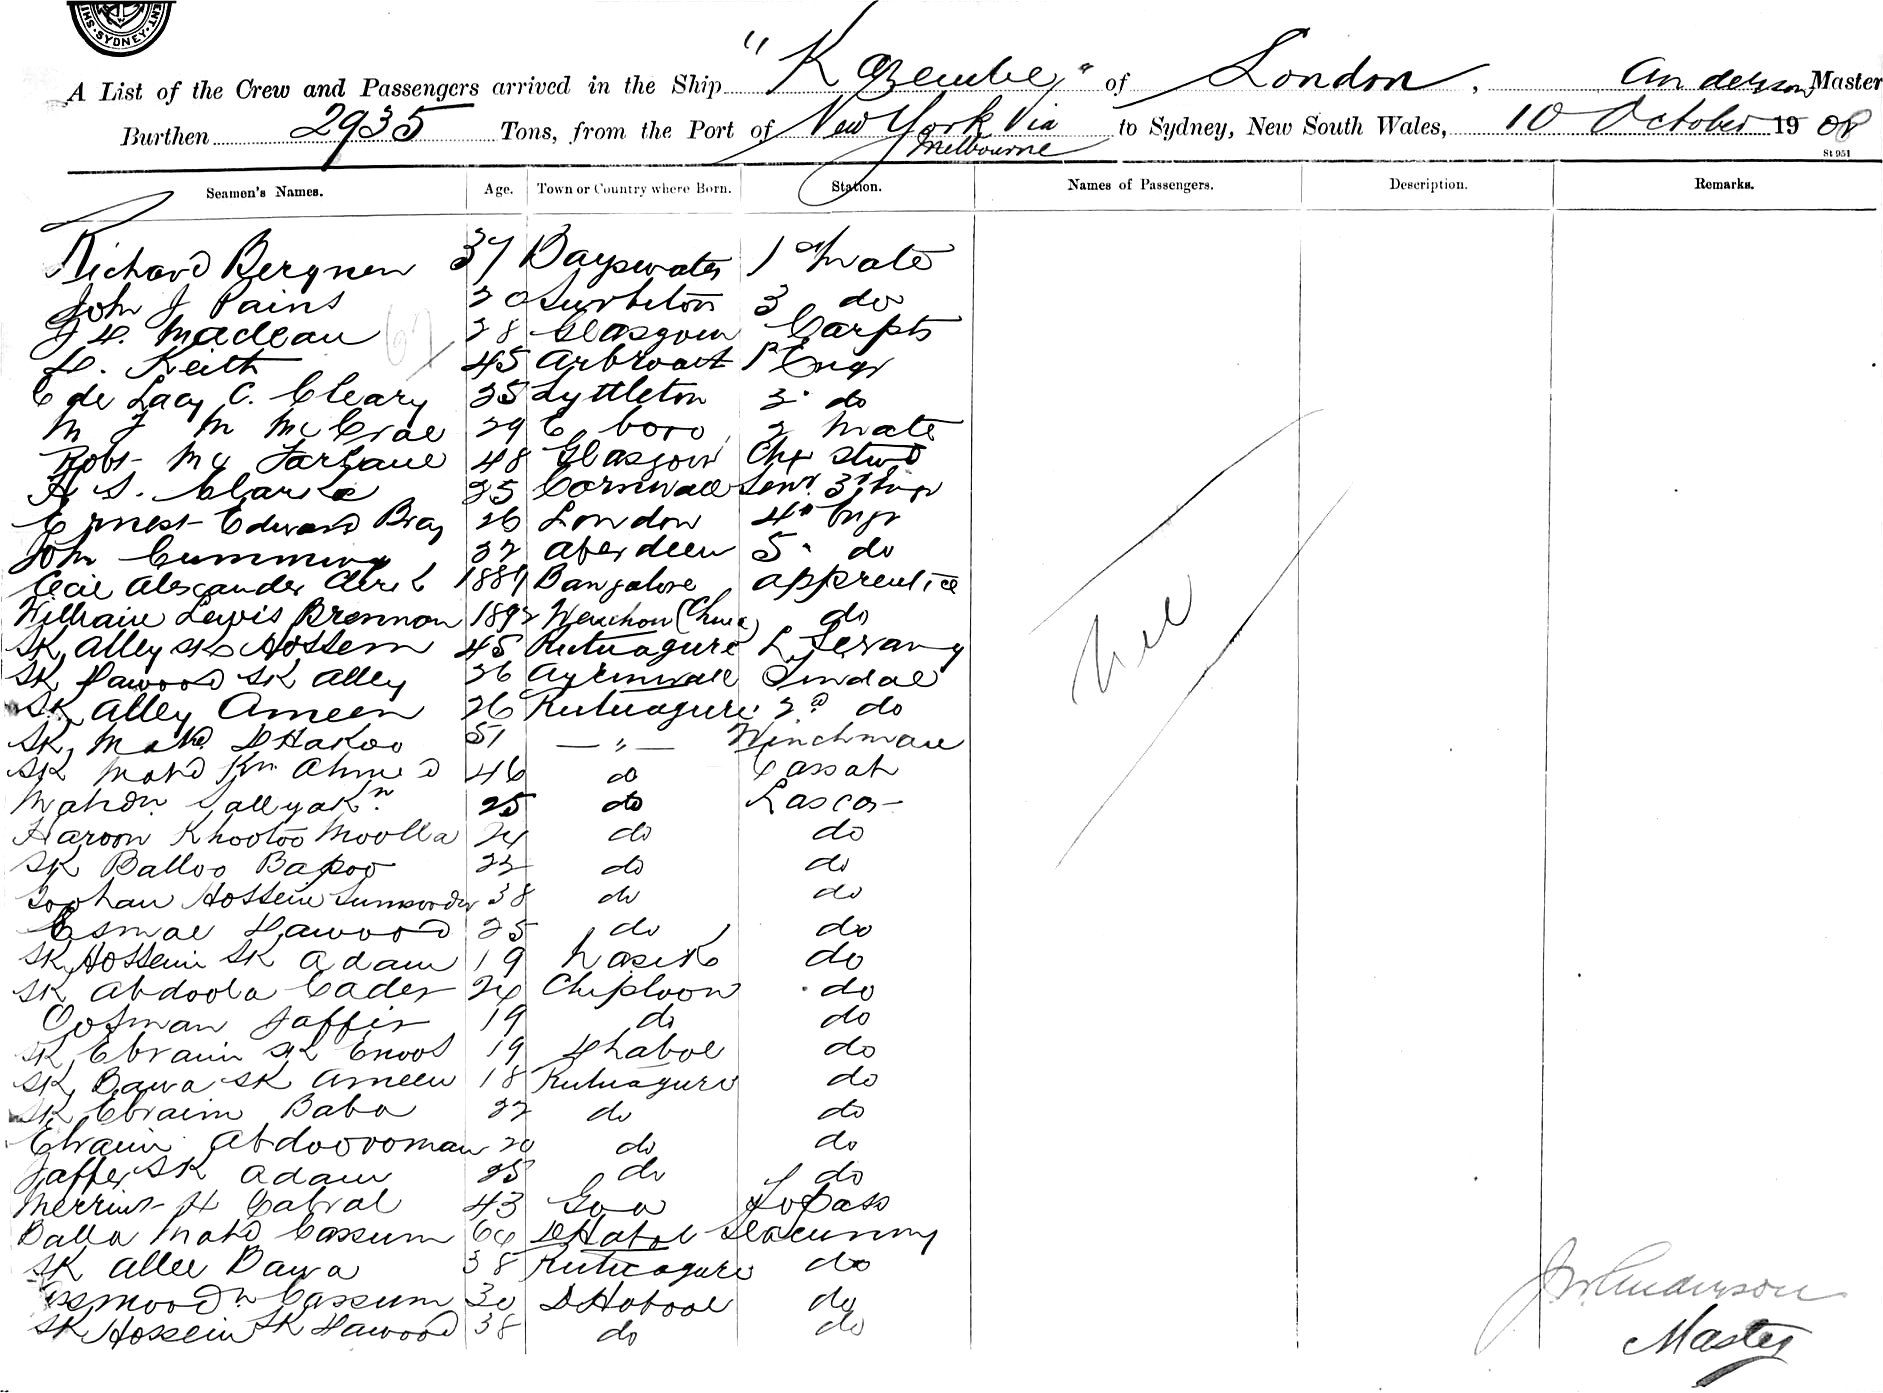 SYDNEY
A List of the Crew and Passengers arrived in the Ship "Kazembe" of London, Anderson Master
Burthen 2935 Tons, from the Port of New York Via Melbourne to Sydney, New South Wales, 10 October 1908
St 951
Seamen's Names. Age. Town or Country where Born. Station. Names of Passengers. Description. Remarks.
Richard Bergnen 37 Bayswater 1st Mate
John J Pains 20 Surbiton 3 do
J H. Maclean 28 Glasgow Carptr
Keith 45 Arbroath 1st Engr
C de Lacy C. Cleary 25 Lyttleton 2" do
M J M McCrae 29 2 Mate
Robt McFarlane 48 Glasgow Chf Stwd
H S. Clarke 25 Cornwall Senr. 3rd Engr
Ernest Edward Bray 26 London 4th Engr
John Cumming 22 Aberdeen 5" do
Cecil Alexander 1889 Bangalore apprentice
William Lewis Brennan 1892 Wenchow (China) do
SK Alley SK Hossein 45 Rutnagure L Serang
SK Dawood SK Alley 36 Tindal
SK Alley Ameen 26 Rutnagure 2d do
SK Mahd DHakoo 51 — " — Winchman
SK Mahd Ahmed 46 do Cassab
25 do Lascar
Haroon Khootoo Moolla 24 do do
SK Balloo Bapoo 22 do do
Hossein 38 do do
Esmae Dawood 25 do do
SK Hossein SK Adam 19 Nasik do
SK Abdoola Cader 24 Chiploon do
Oosman Jaffir 19 do do
SK Ebraim SK 19 Dhabol do
SK Bawa SK Ameen 18 Rutnagure do
SK Ebraim Baba 22 do do
Ebraim 20 do do
Jaffer SK Adam 25 do do
H Cabral 43 Goa Topass
Balla Mahd Cassum 64 DHabol Seacunny
SK Allee Bawa 38 Rutnagure do
Cassum 30 DHabool do
SK Hossein SK Dawood 38 do do
Nil
J W Anderson
Master